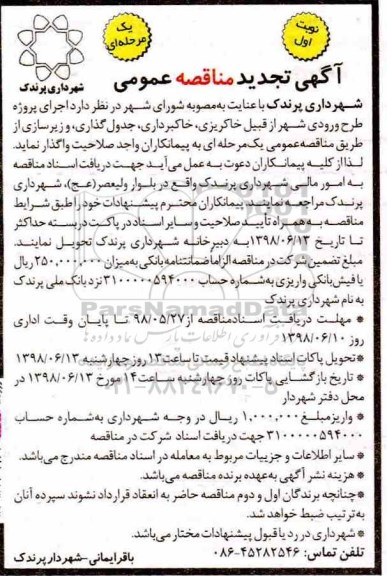 نوبت
اول
یک
مرحله‌ای
شهرداری پرندک
آگهی تجدید مناقصه عمومی
شهرداری پرندک با عنایت به مصوبه شورای شهر در نظر دارد اجرای پروژه
طرح ورودی شهر از قبیل خاکریزی، خاکبرداری، جدول‌گذاری، و زیرسازی از
طریق مناقصه عمومی یک مرحله ای به پیمانکاران واجد صلاحیت واگذار نماید.
لذا از کلیه پیمانکاران دعوت به عمل می‌آید جهت دریافت اسناد مناقصه
به امور مالی شهرداری پرندک واقع در بلوار ولیعصر(عج)، شهرداری
پرندک مراجعه نمایند. پیمانکاران محترم پیشنهادات خود را طبق شرایط
مناقصه به همراه تأیید صلاحیت و سایر اسناد در پاکت دربسته حداکثر
تا تاریخ ۱۳۹۸/۰۶/۱۳ به دبیرخانه شهرداری پرندک تحویل نمایند.
مبلغ تضمین شرکت در مناقصه الزاما ضمانتنامه بانکی به میزان ۲۵۰,۰۰۰,۰۰۰ ریال
یا فیش بانکی واریزی به شماره حساب ۳۱۰۰۰۰۰۵۹۴۰۰۰ نزد بانک ملی پرندک
به نام شهرداری پرندک
* مهلت دریافت اسناد مناقصه از ۹۸/۰۵/۲۷ تا پایان وقت اداری
روز ۱۳۹۸/۰۶/۱۰
*تحویل پاکات اسناد پیشنهاد قیمت تا ساعت ۱۳ روز چهارشنبه ۱۳۹۸/۰۶/۱۳
* تاریخ بازگشایی پاکات روز چهارشنبه ساعت ۱۴ مورخ ۱۳۹۸/۰۶/۱۳ در
محل دفتر شهردار
* واریز مبلغ ۱,۰۰۰,۰۰۰ ریال در وجه شهرداری به شماره حساب
۳۱۰۰۰۰۰۵۹۴۰۰۰ جهت دریافت اسناد شرکت در مناقصه
* سایر اطلاعات و جزییات مربوط به معامله در اسناد مناقصه مندرج می‌باشد.
* هزینه نشر آگهی به عهده برنده مناقصه می‌باشد.
*چنانچه برندگان اول و دوم مناقصه حاضر به انعقاد قرارداد نشوند سپرده آنان
به ترتیب ضبط خواهد شد.
*شهرداری در رد یا قبول پیشنهادات مختار می‌باشد.
تلفن تماس: ۴۵۲۸۲۵۴۶-۰۸۶
باقر ایمانی-شهردار پرندک
ParsNamadData
۰۲۱-۸۸۳۴۹۶۷۰-۵